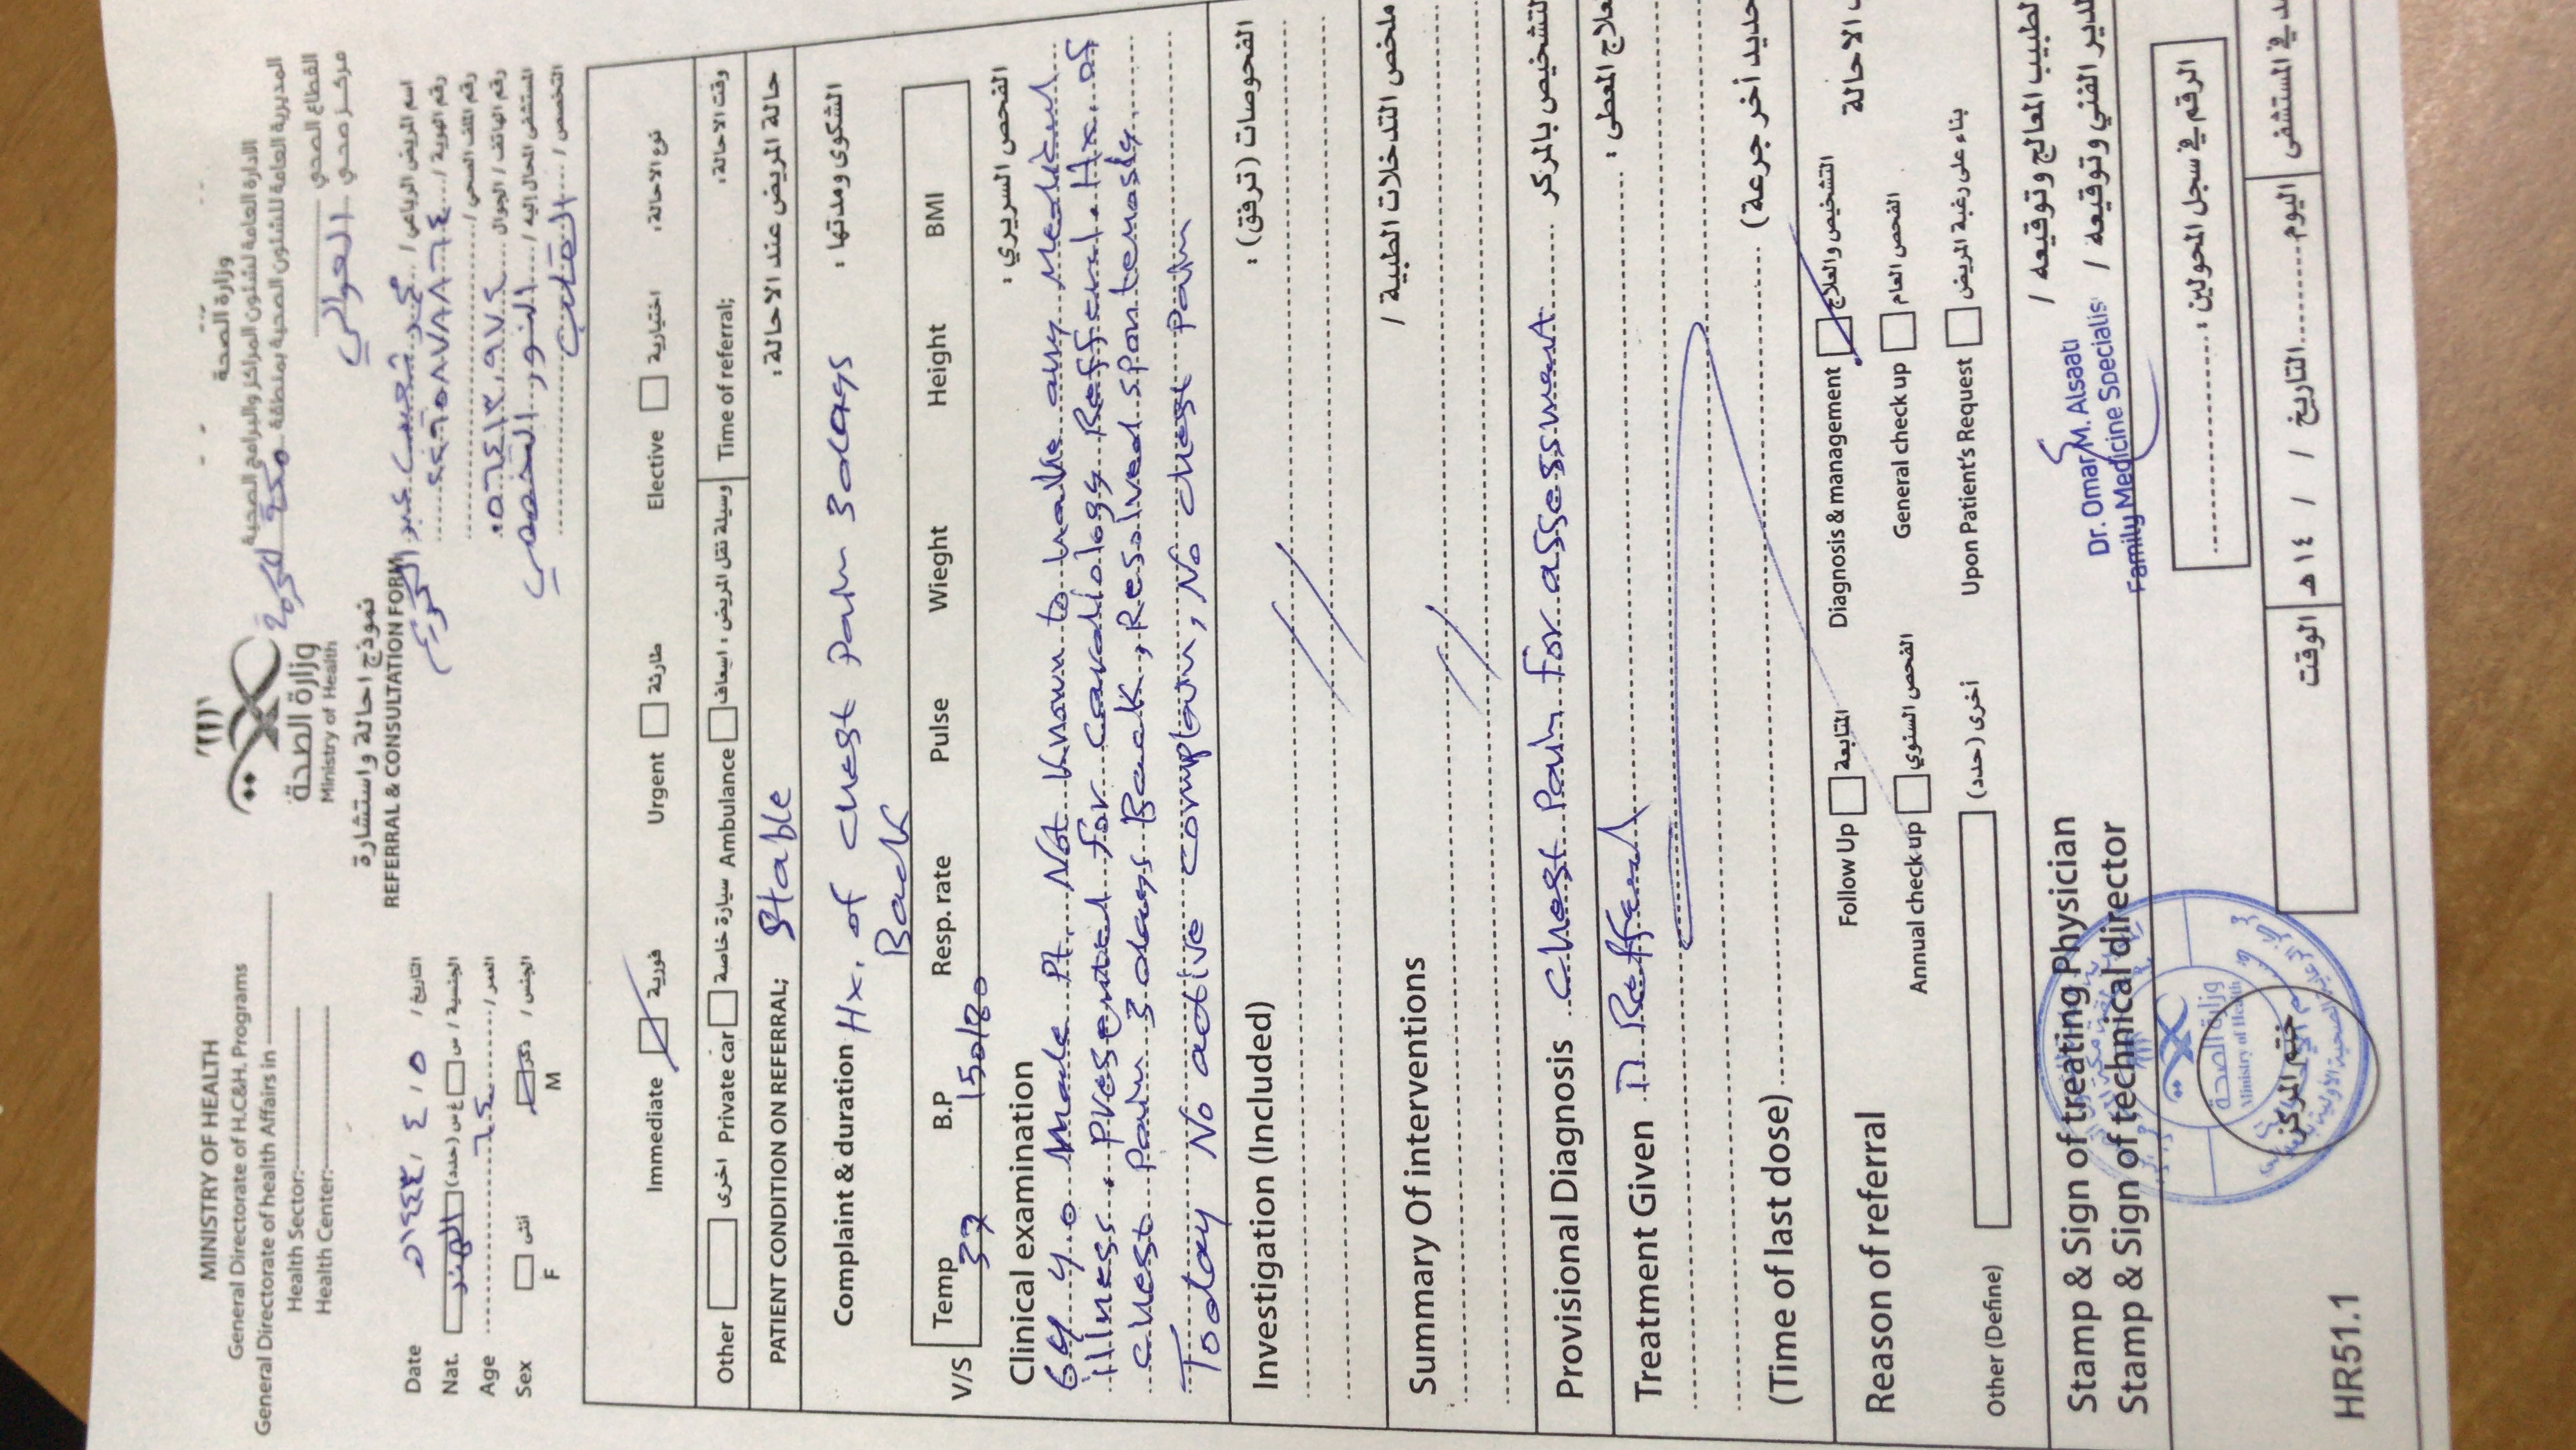 MINISTRY OF HEALTH
General Directorate of H.C&H. Programs
General Directorate of health Affairs in
Health Sector:
Health Center:
وزارة الصحة
Ministry of Health
وزارة الصحة
الادارة العامة لشئون المراكز والبرامج الصحية
المديرية العامة للشئون الصحية بمنطقة مكة المكرمة
القطاع الصحي
مركز صحي العوالي
نموذج احالة واستشارة
REFERRAL & CONSULTATION FORM
Date ٥ / ٤ / ١٤٤٣هـ التاريخ /
Nat. الهند (حدد) غ س س / الجنسية
Age ٦٤ العمر /
Sex أنثى ذكر الجنس /
F M
اسم المريض الرباعي / محمد شعيب عبد الكريم
رقم الهوية / ٢٢٦٥٨٧٨٨٦٤
رقم الملف الصحي /
رقم الهاتف / الجوال ٠٥٦٤١٣٠٩٧٢
المستشفى المحال إليه / النور التخصصي
التخصص / القلب
Immediate فورية Urgent طارئة Elective اختيارية نوع الاحالة:
Other اخرى Private car سيارة خاصة Ambulance وسيلة نقل المريض : اسعاف Time of referral; وقت الاحالة:
PATIENT CONDITION ON REFERRAL; Stable حالة المريض عند الاحالة:
Complaint & duration Hx. of chest Pain 3 days الشكوى ومدتها :
Back
V/S Temp B.P Resp. rate Pulse Wieght Height BMI
37 150/80
Clinical examination الفحص السريري :
64 y.o Male Pt. Not Known to have any Medical
illness. presented for Cardiology Refferal. Hx. of
chest Pain 3 days Back, Resolved spontenosly.
Today No active complain, No chest Pain
Investigation (Included) الفحوصات (ترفق) :
Summary Of interventions ملخص التدخلات الطبية /
Provisional Diagnosis chest Pain for assessment لتشخيص بالمركز
Treatment Given Refferal علاج المعطى :
(Time of last dose) حديد أخر جرعة)
Reason of referral Follow Up المتابعة Diagnosis & management التشخيص والعلاج الاحالة
Annual check up الفحص السنوي General check up الفحص العام
Other (Define) أخرى (حدد) Upon Patient's Request بناء على رغبة المريض
Stamp & Sign of treating Physician لطبيب المعالج وتوقيعه /
Stamp & Sign of technical director لدير الفني وتوقيعه /
Dr. Omar M. Alsaati
Family Medicine Specialis
وزارة الصحة
Ministry of Health
مركز الرعاية الصحية الأولية
ختم المركز
الرقم في سجل المحولين :
د في المستشفى اليوم التاريخ / / ١٤ هـ الوقت
HR51.1